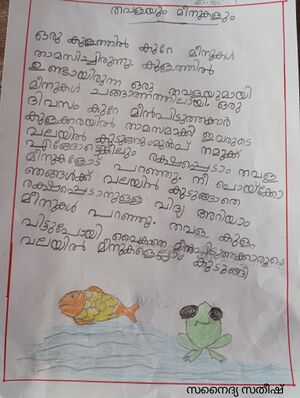 തവളയും മീനുകളും
ഒരു കുളത്തിൽ കുറേ മീനുകൾ
താമസിച്ചിരുന്നു. കുളത്തിൽ
ഉണ്ടായിരുന്ന ഒരു തവളയുമായി
മീനുകൾ ചങ്ങാത്തത്തിലായി. ഒരു
ദിവസം കുറേ മീൻപിടുത്തക്കാർ
കുളക്കരയിൽ താമസമാക്കി ഇവരുടെ
വലയിൽ കുടുങ്ങുംമുൻപ് നമുക്ക്
എങ്ങോട്ടെങ്കിലും രക്ഷപ്പെടാം തവള
മീനുകളോട് പറഞ്ഞു. നീ പൊയ്ക്കോ
ഞങ്ങൾക്ക് വലയിൽ കുടുങ്ങാതെ
രക്ഷപ്പെടാനുള്ള വിദ്യ അറിയാം
മീനുകൾ പറഞ്ഞു. തവള കുളം
വിട്ടുപോയി വൈകാതെ മീൻപിടുത്തക്കാരുടെ
വലയിൽ മീനുകളെല്ലാം കുടുങ്ങി
സനൈദ്യ സതീഷ്